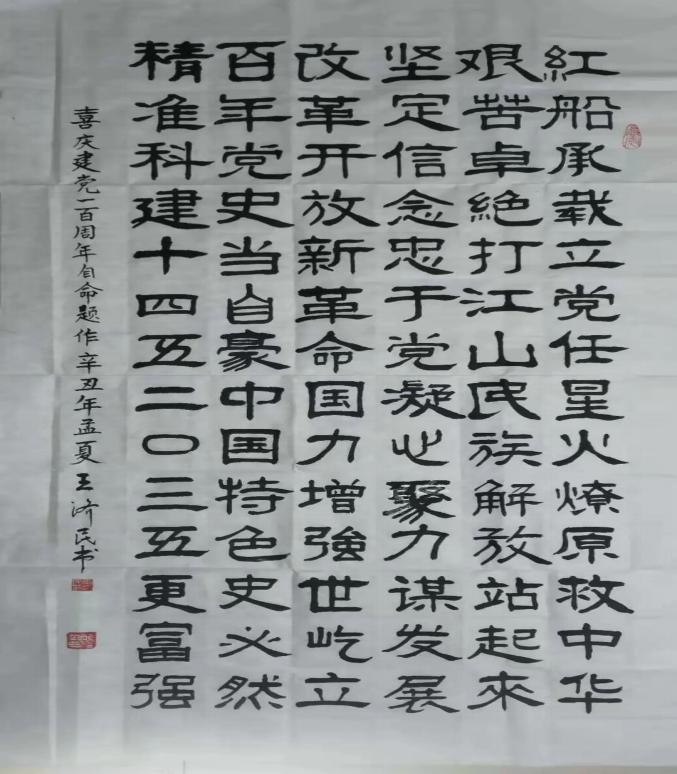 紅船承载立党任星火燎原救中华
艰苦卓絶打江山民族解放站起来
坚定信念忠于党凝心聚力谋发展
改革开放新革命国力增強世屹立
百年党史当自豪中国特色史必然
精准科建十四五二〇三五更富强
喜庆建党一百周年自命题作辛丑年孟夏王济民书